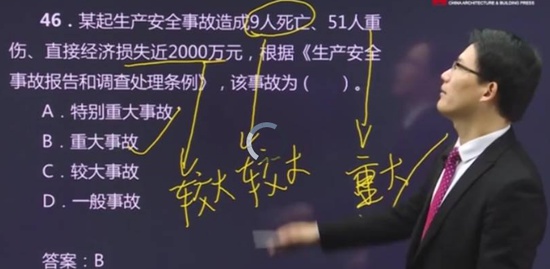 CHINA ARCHITECTURE & BUILDING PRESS
46. 某起生产安全事故造成9人死亡、51人重
伤、直接经济损失近2000万元，根据《生产安全
事故报告和调查处理条例》，该事故为（ ）。
A. 特别重大事故
B. 重大事故
C. 较大事故
D. 一般事故
较大 较大 重大
答案：B